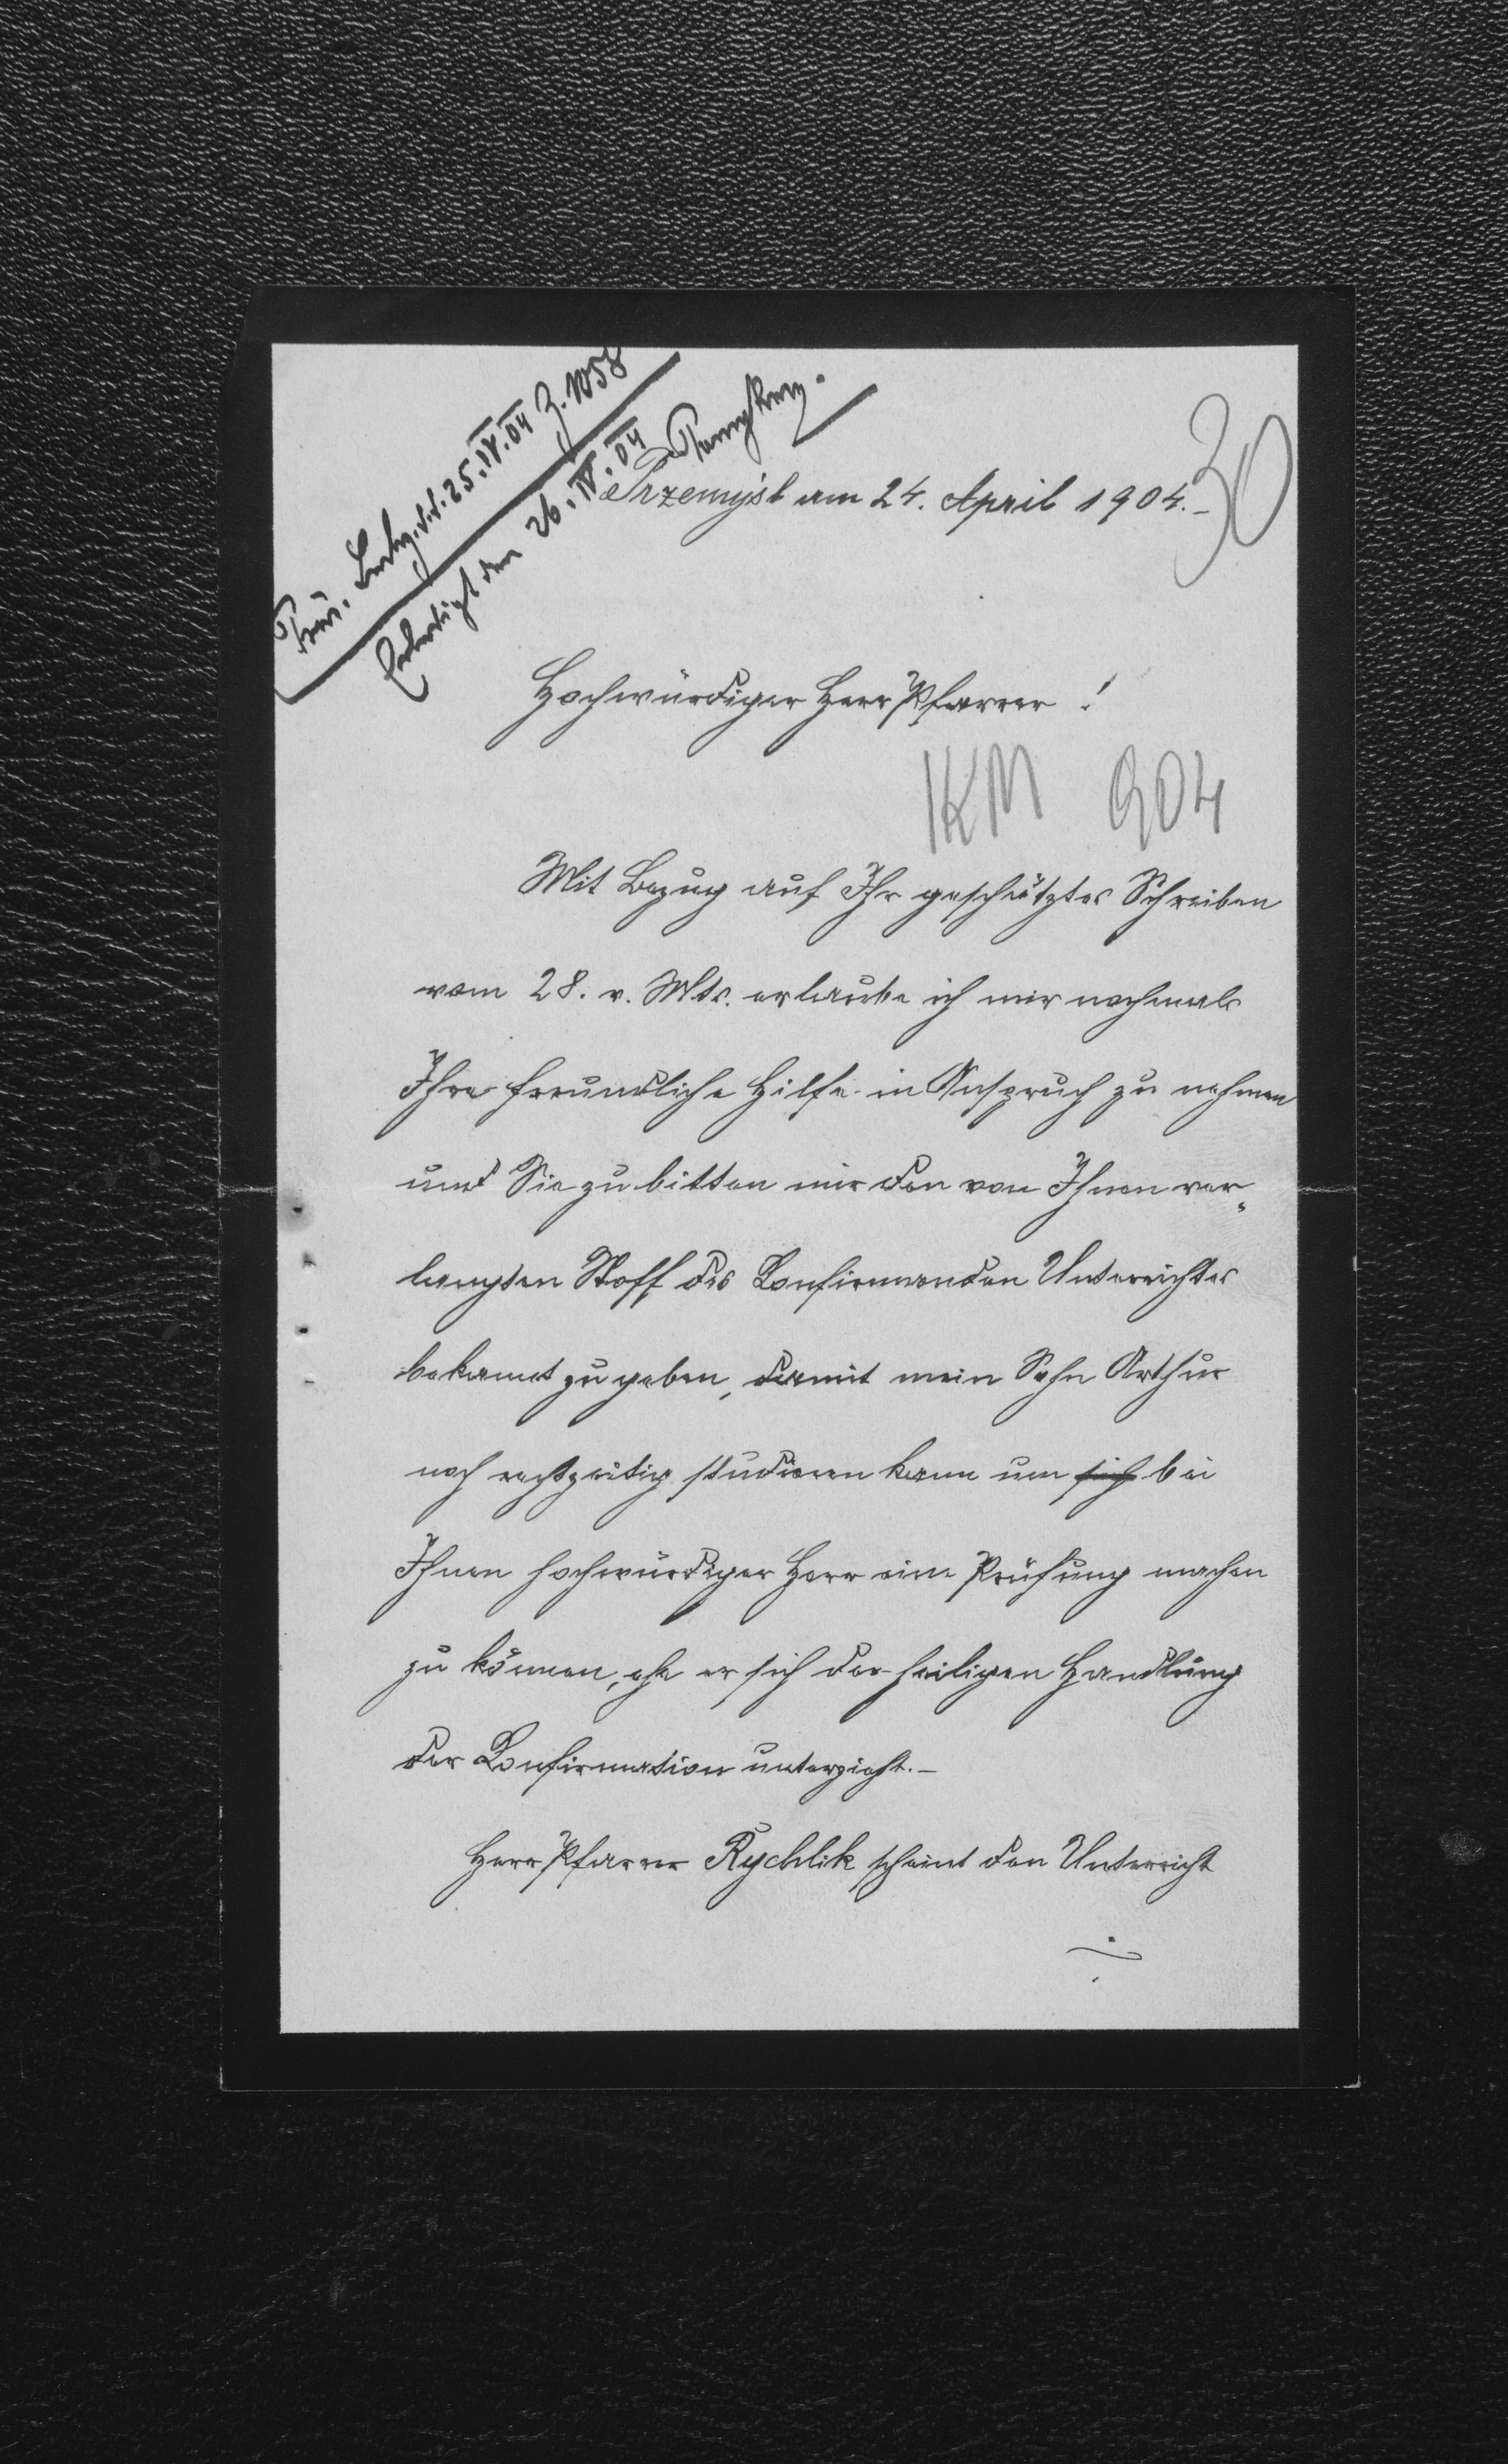 Präs. Lemberg. d. d. 25. IV. 04 Z. 1058
Erledigt den 26. IV. 04
30
Przemyśl am 24. April 1904.–
Hochwürdiger Herr Pfarrer !
KM 904
Mit Bezug auf Ihr geschätztes Schreiben
vom 28. v. Mts. erlaube ich mir nochmals
Ihre freundliche Hilfe in Anspruch zu nehmen
und Sie zu bitten mir den von Ihnen ver„
langten Stoff des Confirmanden Unterrichtes
bekannt zu geben, damit mein Sohn Arthur
noch rechtzeitig studieren kann um sich bei
Ihnen hochwürdiger Herr eine Prüfung machen
zu können, ehe er sich der heiligen Handlung
der Confirmation unterzieht.–
Herr Pfarrer Rychlik scheint den Unterricht